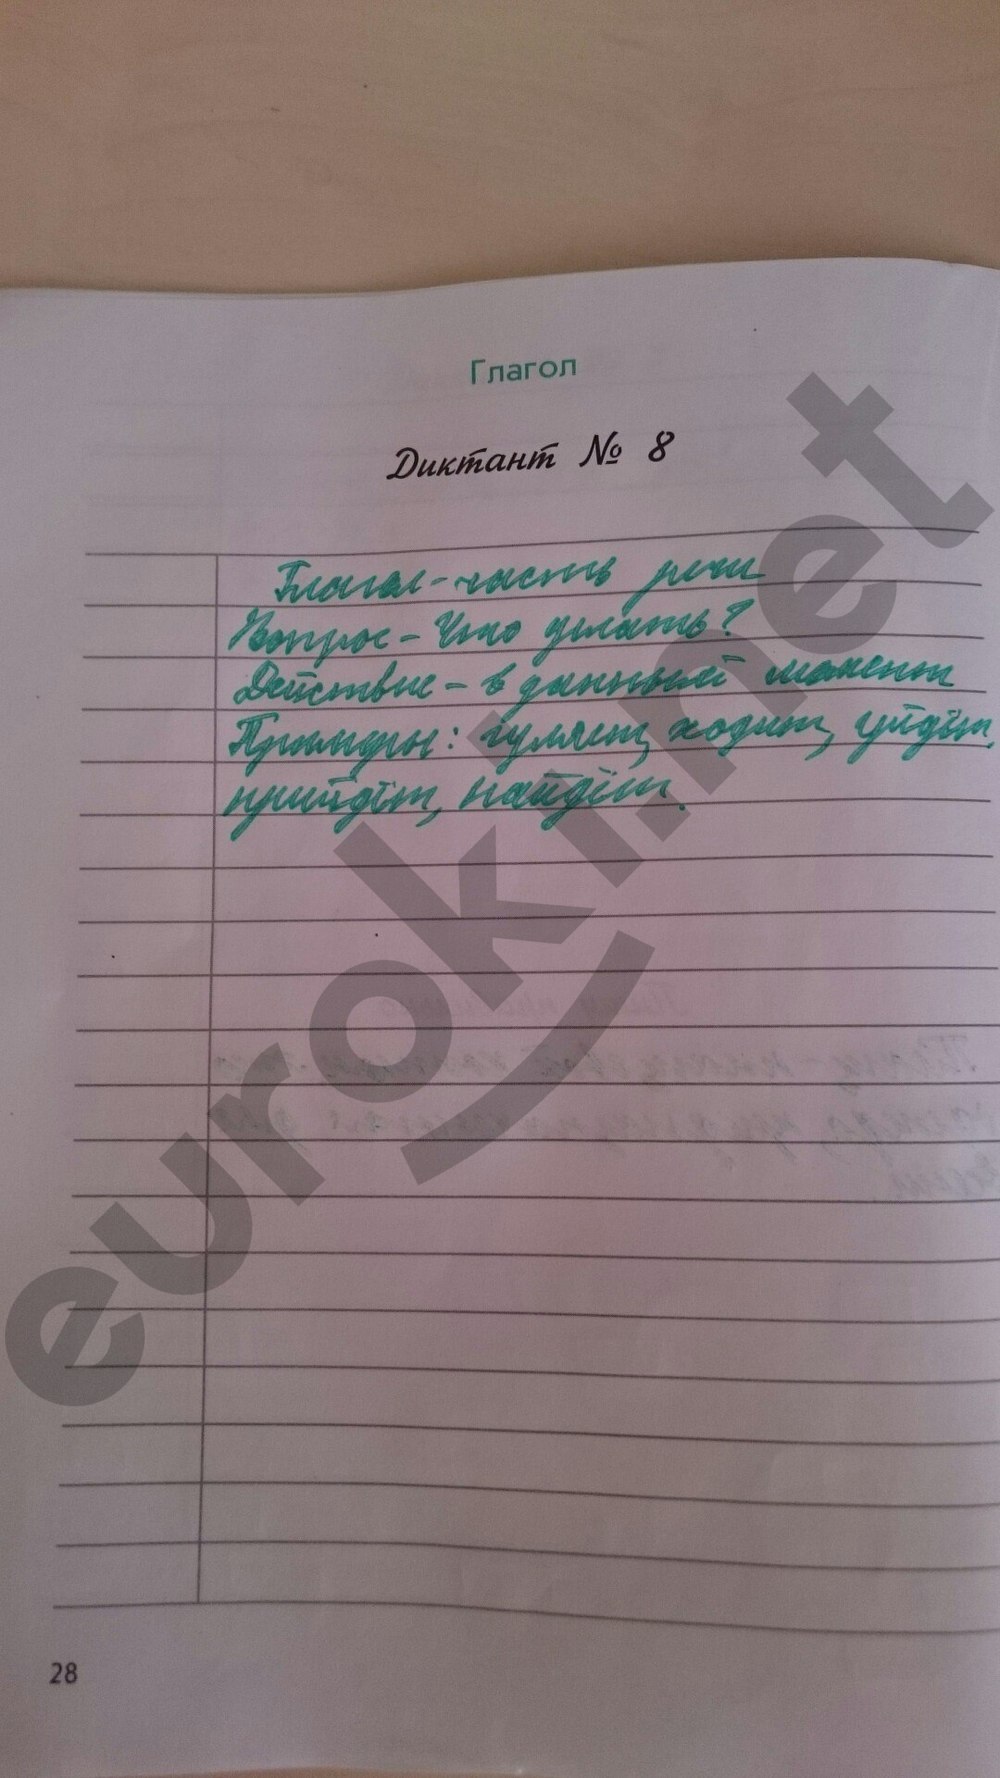 Глагол
Диктант № 8
Глагол - часть речи
Вопрос - Что делать?
Действие - в данный момент
Примеры: гуляет, ходит, уйдёт,
прийдёт, найдёт.
28
euroki.net